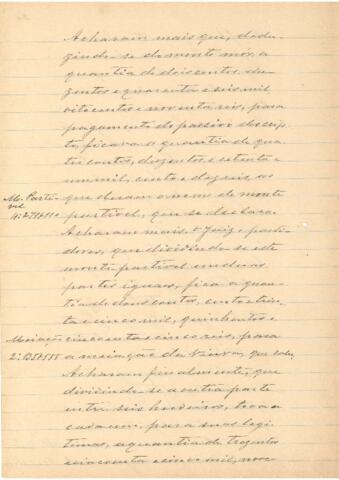 Acharam mais que, dedu-
zindo-se do monte mór, a
quantia de dois contos, du-
zentos e quarenta e seis mil
oitocentos e noventa réis, para
pagamento do passivo descrip-
to, ficara a quantia de qua-
tro contos, duzentos e setenta e
um mil, cento e dez réis, ao
M. Parti-
vel
4:271$110
que deram o nome de monte
partivel, que se declara.
Acharam mais, o Juiz e parti-
dores, que dividindo-se este
monte-partivel em duas
partes iguaes, fica a quan-
tia de dous contos, cento e trin-
ta e cinco mil, quinhentos e
Meiação
2:135$555
cincoenta e cinco réis, para
a meiação da viuva, que
Acharam finalmente, que
dividindo-se a outra parte
entre seis herdeiros, toca a
cada um, para suas legi-
timas, a quantia de trezentos
e cincoenta e cinco mil, nove-